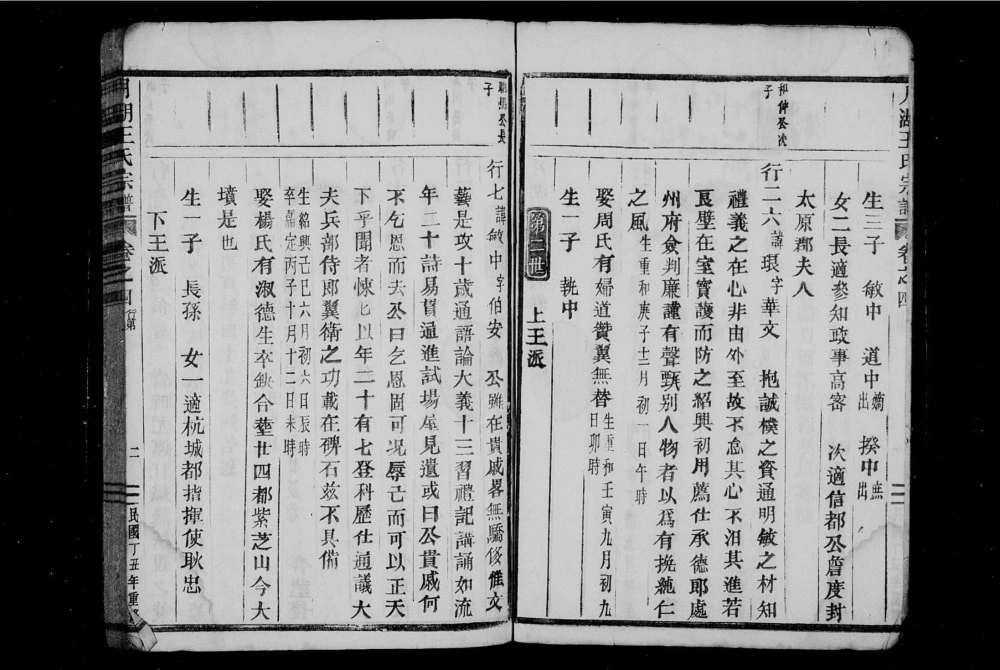 月湖王氏宗譜 卷之四
生三子 敏中 道中嫡出 揆中庶出
女二長適參知政事高審 次適信都公詹度封
太原郡夫人
相仲公次子
行二六諱琅字華文 抱誠樸之資通明敏之材知
禮義之在心非由外至故不怠其心不汨其進若
良壁在室實護而防之紹興初用薦仕承德郎處
州府僉判廉謹有聲甄别人物者以為有挽繩仁
之風生重和庚子十二月初一日午時
娶周氏有婦道贊翼無替生重和壬寅九月初九日卯時
生一子 執中
第二世 上王派
公長子
行七諱敏中字伯安 公雖在貴戚畧無驕侈惟文
藝是攻十歲通語論大義十三習禮記講誦如流
年三十詩易貿通進試場屋見遺或曰公貴戚何
不乞恩而去公曰乞恩固可况辱己而可以正天
下乎聞者悚屹以年二十有七登科歷仕通議大
夫兵部侍郎翼衛之功載在碑石兹不具備
生紹興己巳六月初六日辰時
卒嘉定丙子十月十二日未時
娶楊氏有淑德生卒缺合塟廿四都紫芝山今大
墳是也
生一子 長孫 女一適杭城都指揮使耿忠
下王派
月湖王氏宗譜 卷之四 行第 二 民國丁丑年重修